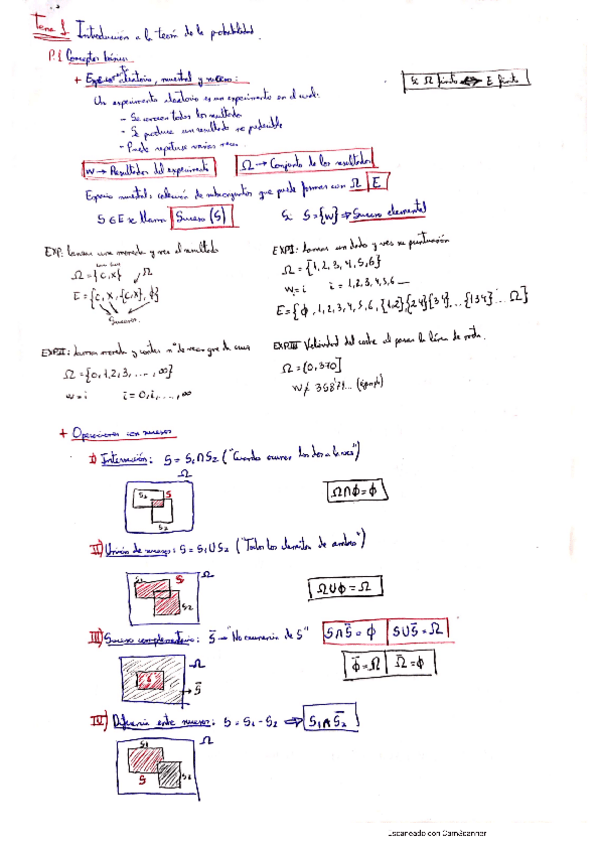 Tema 1 Introducción a la teoría de la probabilidad.
P.1 Conceptos básicos
+ Espacio aleatorio, muestral y suceso:
Si Ω finito ⇔ E finito
Un experimento aleatorio es un experimento en el cual:
- Se conocen todos los resultados
- Se produce un resultado no predecible
- Puede repetirse varias veces
w → Resultados del experimento
Ω → Conjunto de los resultados
Espacio muestral: colección de subconjuntos que puedo formar con Ω E
S ∈ E se llama Suceso (S)
Si S = {w} ⇒ Suceso elemental
EXP: Lanzar una moneda y ver el resultado
Ω = {C, X}
Ω
E = {C, X, {C,X}, ϕ}
Sucesos.
EXPI: Lanzas un dado y ves su puntuación
Ω = {1, 2, 3, 4, 5, 6}
w = i i = 1, 2, 3, 4, 5, 6
E = {ϕ, 1, 2, 3, 4, 5, 6, {1,2} {2,4} {3,4} ... {1 3 4} ... Ω}
EXPII: Lanzas moneda y cuentas nº de veces que da cara
Ω = {0, 1, 2, 3, ..., ∞}
w = i i = 0, 1, ..., ∞
EXPIII Velocidad del coche al pasar la línea de meta.
Ω = (0, 370]
(ejemplo)
+ Operaciones con sucesos
I) Intersección: S = S1 ∩ S2 ("Cuando ocurren los dos a la vez")
Ω
S1 S
S2
Ω ∩ ϕ = ϕ
II) Unión de sucesos: S = S1 ∪ S2 ("Todos los elementos de ambos")
S1 S Ω
S2
Ω ∪ ϕ = Ω
III) Suceso complementario: S̄ → "No ocurrencia de S"
S ∩ S̄ = ϕ S ∪ S̄ = Ω
ϕ̄ = Ω Ω̄ = ϕ
Ω
S
S̄
IV) Diferencia entre sucesos: S = S1 - S2 ⇒ S1 ∩ S̄2
S1 Ω
S S2
Escaneado con CamScanner